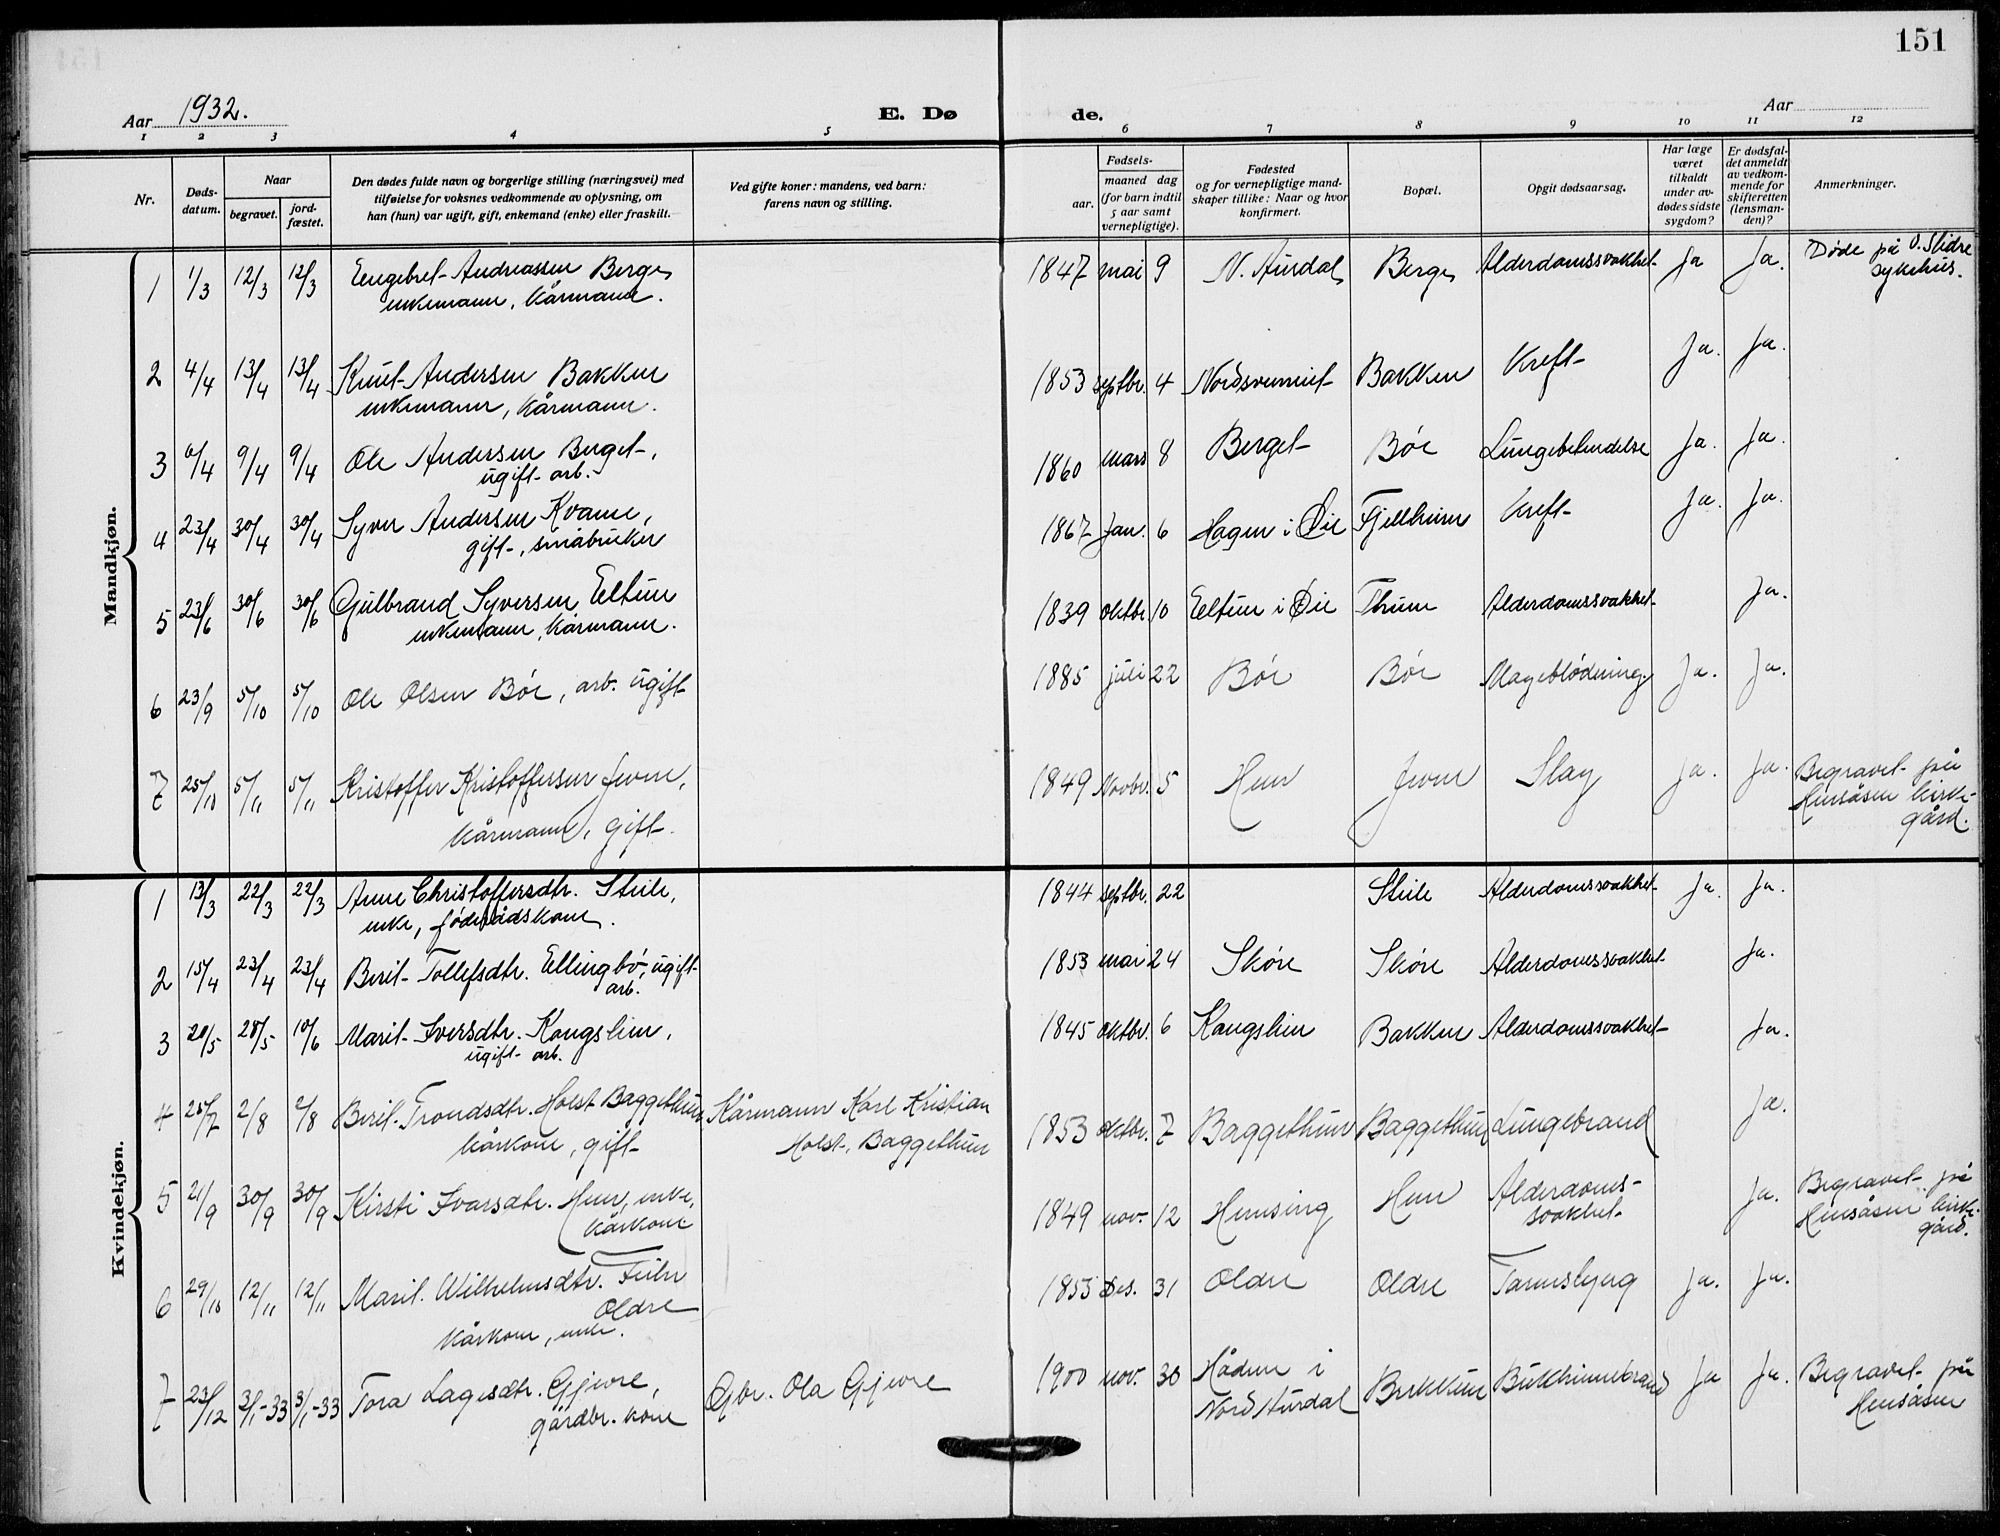 151
Aar 1932. E. Dø de. Aar
1 2 3 4 5 6 7 8 9 10 11 12
Nr. Døds-datum. Naar begravet. jord-fæstet. Den dødes fulde navn og borgerlige stilling (næringsvei) med tilføielse for voksnes vedkommende av oplysning, om han (hun) var ugift, gift, enkemand (enke) eller fraskilt. Ved gifte koner: mandens, ved barn: farens navn og stilling. Fødsels- aar. maaned dag (for barn indtil 5 aar samt vernepligtige). Fødested og for vernepligtige mand-skaper tillike: Naar og hvor konfirmert. Bopæl. Opgit dødsaarsag. Har læge været tilkaldt under av-dødes sidste sygdom? Er dødsfal-det anmeldt av vedkom-mende for skifteretten (lensman-den)? Anmerkninger.
Mandkjøn.
1 1/3 12/3 12/3 Engebret Andreassen Berge 1847 mai 9 N. Aurdal Berge Alderdomssvakhet Ja Ja. Døde på V. Slidre
enkemann, kårmann. sykehus.
2 4/4 13/4 13/4 Knut Andersen Bakken 1853 septbr. 4 Nordsveniet Bakken Kreft Ja. Ja.
enkemann, kårmann.
3 6/4 9/4 9/4 Ole Andersen Berget, 1860 mars 8 Berget Bøe Lungebetendelse Ja. Ja.
ugift arb.
4 23/4 30/4 30/4 Syver Andersen Kvame, 1867 Jan. 6 Hagen i Øie Fjellheim Kreft Ja. Ja.
gift, småbruker
5 23/6 30/6 30/6 Gulbrand Syversen Eltun 1839 oktbr. 10 Eltun i Øie Thune Alderdomssvakhet Ja.
enkemann, kårmann.
6 23/9 5/10 5/10 Ole Olsen Bøe, arb. ugift 1885 juli 22 Bøe Bøe Mageblødning. Ja. Ja.
7 25/10 5/11 5/11 Kristoffer Kristoffersen Jevne, 1849 Novbr. 5 Hen Jevne Slag Ja. Ja. Begravet på
kårmann, gift. Hensåsen kirke-
gård.
Kvindekjøn.
1 13/3 22/3 22/3 Anne Christoffersdtr. Steile, 1844 septbr. 22 Steile Alderdomssvakhet Ja. Ja.
enke, føderådskone.
2 15/4 23/4 23/4 Berit Tollefsdtr. Ellingbø, ugift 1853 mai 24 Skøre Skøre Alderdomssvakhet Ja.
arb.
3 20/5 28/5 10/6 Marit Iversdtr. Kongslien, 1845 oktbr. 6 Kongslien Bakken Alderdomssvakhet Ja.
ugift arb.
4 25/7 2/8 2/8 Berit Trondsdtr. Holst Baggethun Kårmann Karl Kristian 1853 oktbr. 7 Baggethun Baggethun Lungebrand Ja.
kårkone, gift Holst Baggethun
5 21/9 30/9 30/9 Kirsti Ivarsdtr. Hen, enke, 1849 nov. 12 Hemsing Hen Alderdoms- Ja. Begravet på
kårkone svakhet Hensåsen kirke-
gård.
6 29/10 12/11 12/11 Marit Wilhelmsdtr. 1853 Des. 31 Oldre Oldre Tarmslyng Ja. Ja.
Oldre
kårkone, enke.
7 23/12 3/1-33 3/1-33 Tora Lagesdtr. Gjevre, Gbr. Ola Gjevre 1900 nov. 30 Håden i Brekken Bukhinnebrand Ja Ja. Begravet på
gårdbr. kone Nord Aurdal Hensåsen